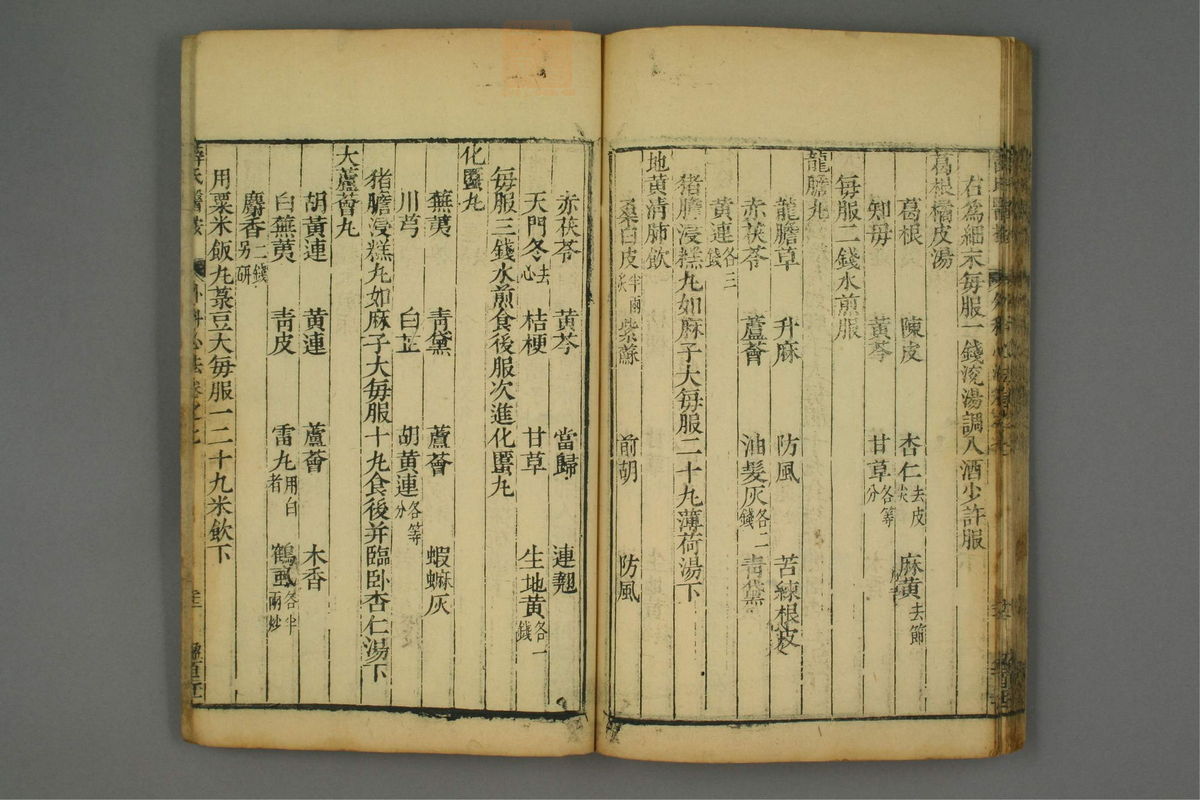 右為細末每服一錢滾湯調入酒少許服
葛根橘皮湯
葛根 陳皮 杏仁去皮尖 麻黃去節
知母 黃芩 甘草各等分
每服二錢水煎服
龍膽丸
龍膽草 升麻 防風 苦練根皮
赤茯苓 蘆薈 油髮灰各二錢 青黛
黃連各三錢
猪膽浸糕丸如麻子大每服二十丸薄荷湯下
地黃清肺飲
桑白皮半兩炙 紫蘇 前胡 防風
赤茯苓 黃芩 當歸 連翹
天門冬去心 桔梗 甘草 生地黃各一錢
每服三錢水煎食後服次進化䘌丸
化䘌丸
蕪荑 青黛 蘆薈 蝦蟆灰
川芎 白芷 胡黃連各等分
猪膽浸糕丸如麻子大每服十丸食後并臨臥杏仁湯下
大蘆薈丸
胡黃連 黃連 蘆薈 木香
白蕪荑 青皮 雷丸用白者 鶴虱各半兩炒
麝香二錢另研
用粟米飯丸菉豆大每服一二十丸米飲下
薛氏醫按 外科心法卷之七